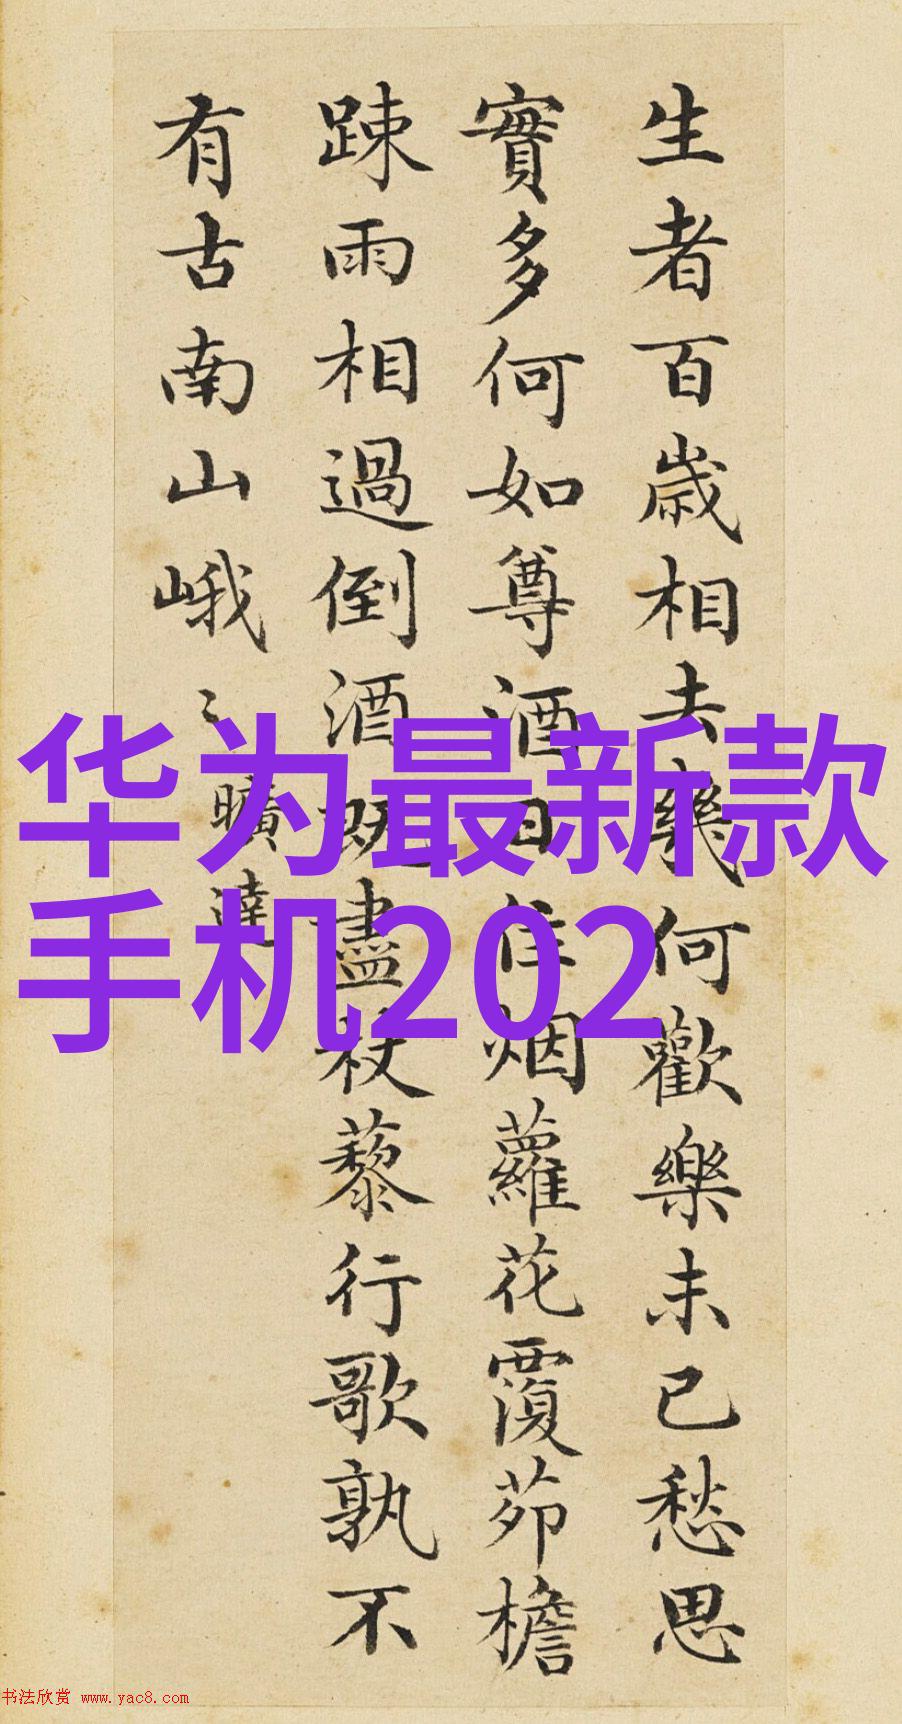 生者百歲相去幾何歡樂未已愁思
實多何如尊酒日往烟蘿花覆茆檐
踈雨相過倒酒既盡杖藜行歌孰不
有古南山峨〻曠達
华为最新款
手机202
书法欣赏 www.yac8.com